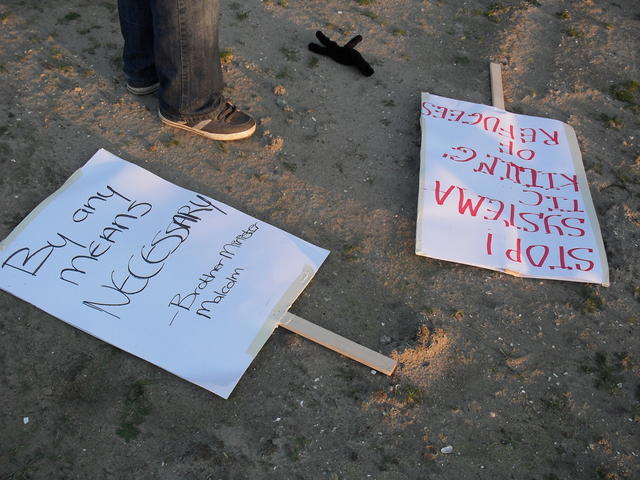 By any
MEANS
NECESSARY
-Brother Minister
Malcolm
STOP!
SYSTEMA
TIC
KILLING
OF
REFUGEES